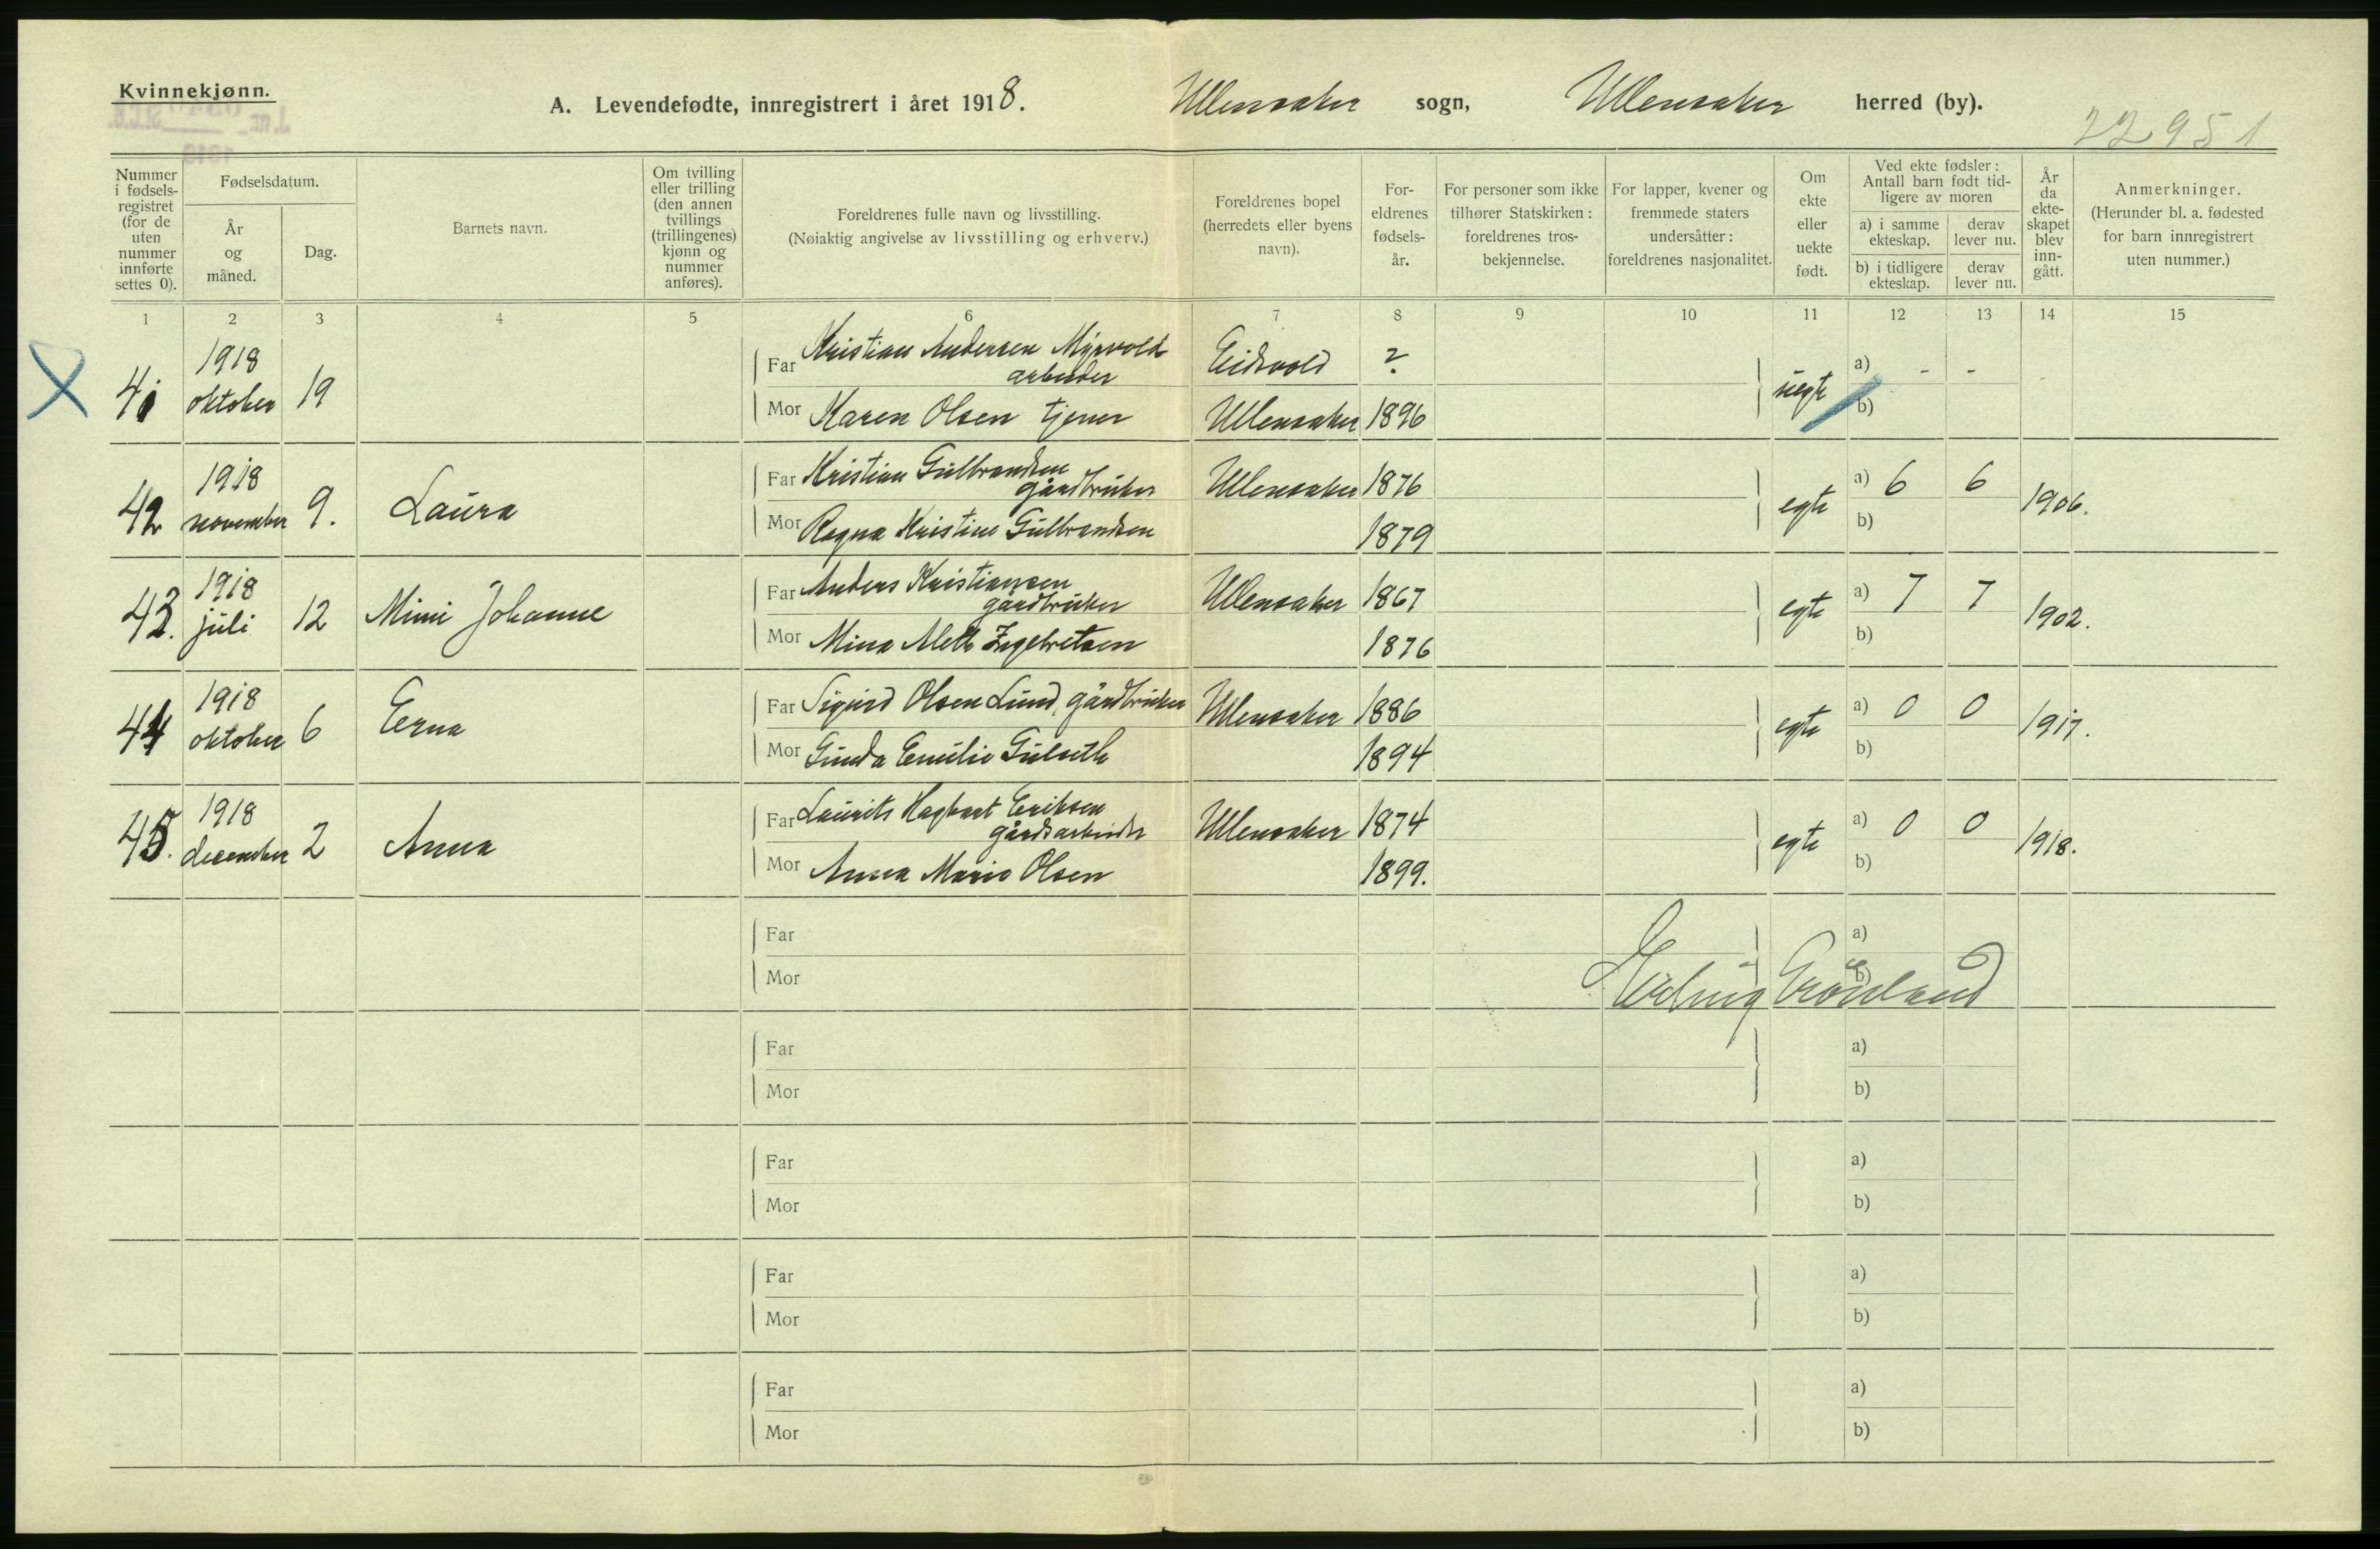 Kvinnekjønn.
A. Levendefødte, innregistrert i året 1918. Ullensaker sogn, Ullensaker herred (by).
22951
Nummer i fødsels-registret (for de uten nummer innførte settes 0).
Fødselsdatum.
År og måned.
Dag.
Barnets navn.
Om tvilling eller trilling (den annen tvillings (trillingenes) kjønn og nummer anføres).
Foreldrenes fulle navn og livsstilling.
(Nøiaktig angivelse av livsstilling og erhverv.)
Foreldrenes bopel (herredets eller byens navn).
For-eldrenes fødsels-år.
For personer som ikke tilhører Statskirken: foreldrenes tros-bekjennelse.
For lapper, kvener og fremmede staters undersåtter: foreldrenes nasjonalitet.
Om ekte eller uekte født.
Ved ekte fødsler: Antall barn født tid-ligere av moren
a) i samme ekteskap. derav lever nu.
b) i tidligere ekteskap. derav lever nu.
År da ekte-skapet blev inn-gått.
Anmerkninger.
(Herunder bl. a. fødested for barn innregistrert uten nummer.)
1 2 3 4 5 6 7 8 9 10 11 12 13 14 15
1918 Far Kristian Andersen Myrvold Eidsvold ? a) - -
arbeider
41 oktober 19 uegte
Mor Karen Olsen tjener Ullensaker 1896 b)
1918 Far Kristian Gulbrandsen Ullensaker 1876 a) 6 6
gårdbruker
42 november 9. Laura egte 1906.
Mor Ragna Kristine Gulbrandsen 1879 b)
1918 Far Anders Kristiansen Ullensaker 1867 a) 7 7
gårdbruker
43. juli 12 Mimi Johanne egte 1902.
Mor Mina Aleth Engebretsen 1876 b)
1918 Far Sigurd Olsen Lund, gårdbruker Ullensaker 1886 a) 0 0
44 oktober 6 Erna egte 1917.
Mor Gunda Emilie Gulseth 1894 b)
1918 Far Laurits Hagbart Eriksen Ullensaker 1874 a) 0 0
gårdsarbeider
45. december 2 Anna egte 1918.
Mor Anna Marie Olsen 1899. b)
Far a)
Mor b)
Erling Grönland
Far a)
Mor b)
Far a)
Mor b)
Far a)
Mor b)
Far a)
Mor b)